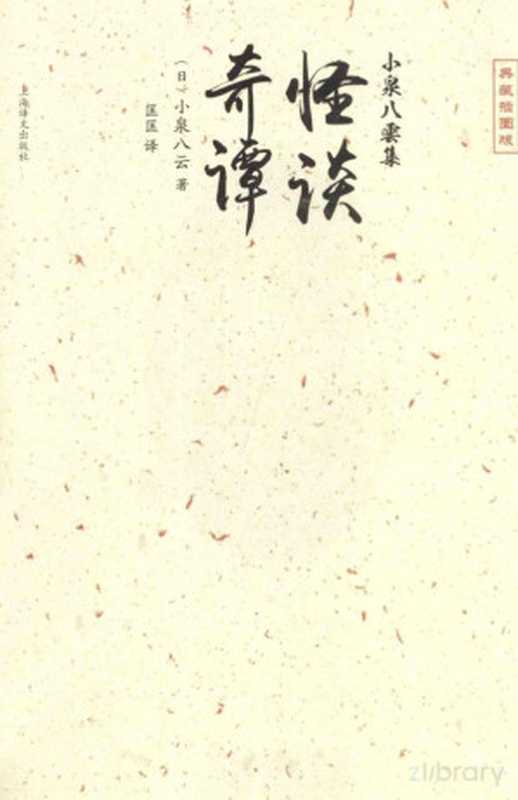 典藏插图版
小泉八雲集
怪谈
奇谭
（日）小泉八云 著
匡匡 译
上海译文出版社
zlibrary